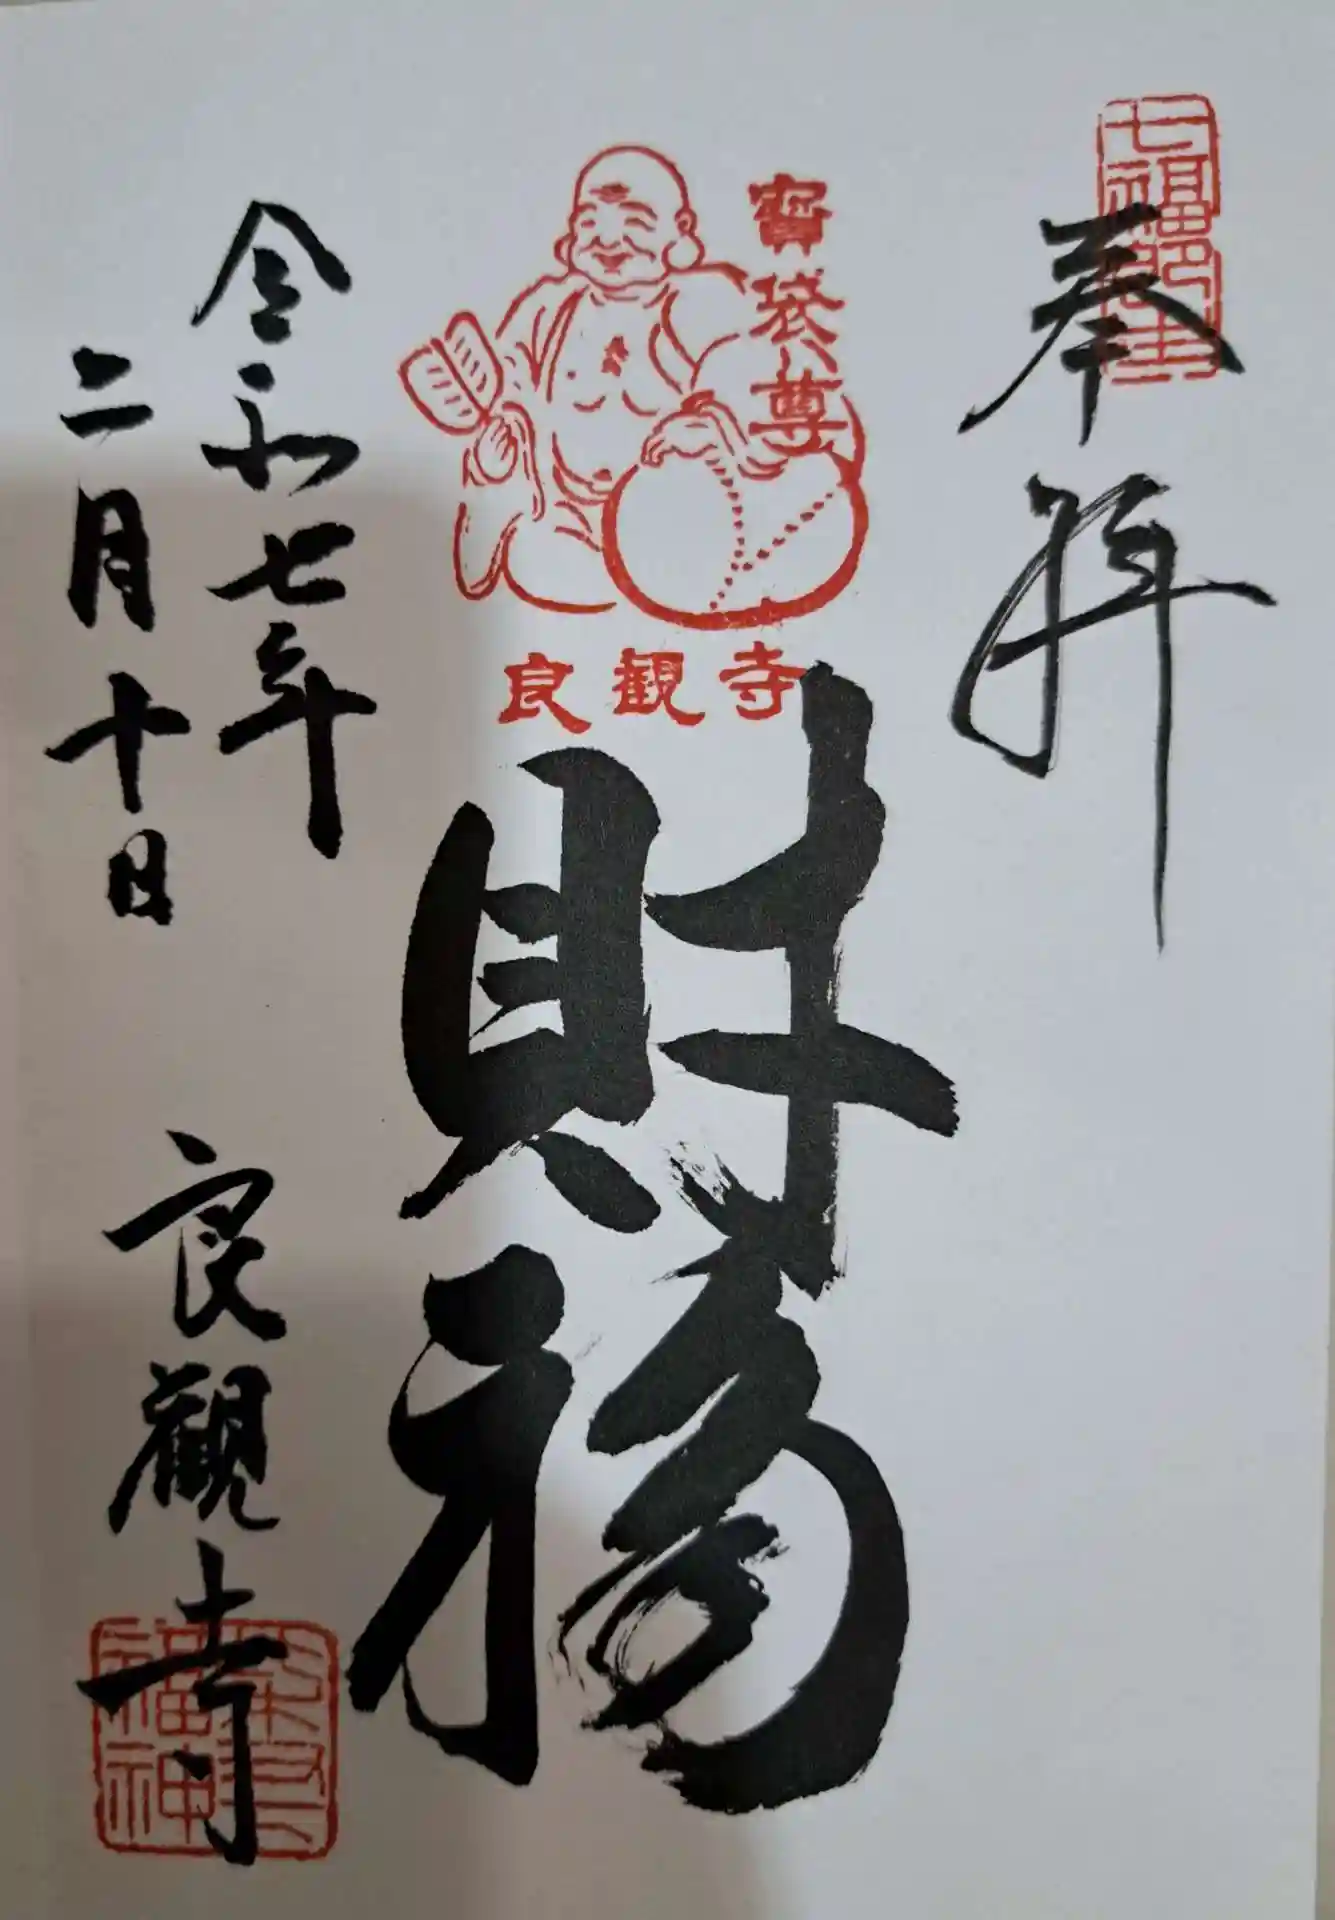 奉拝
七福即生
寳袋尊
良観寺
財福
令和七年
二月十日
良觀寺
福神